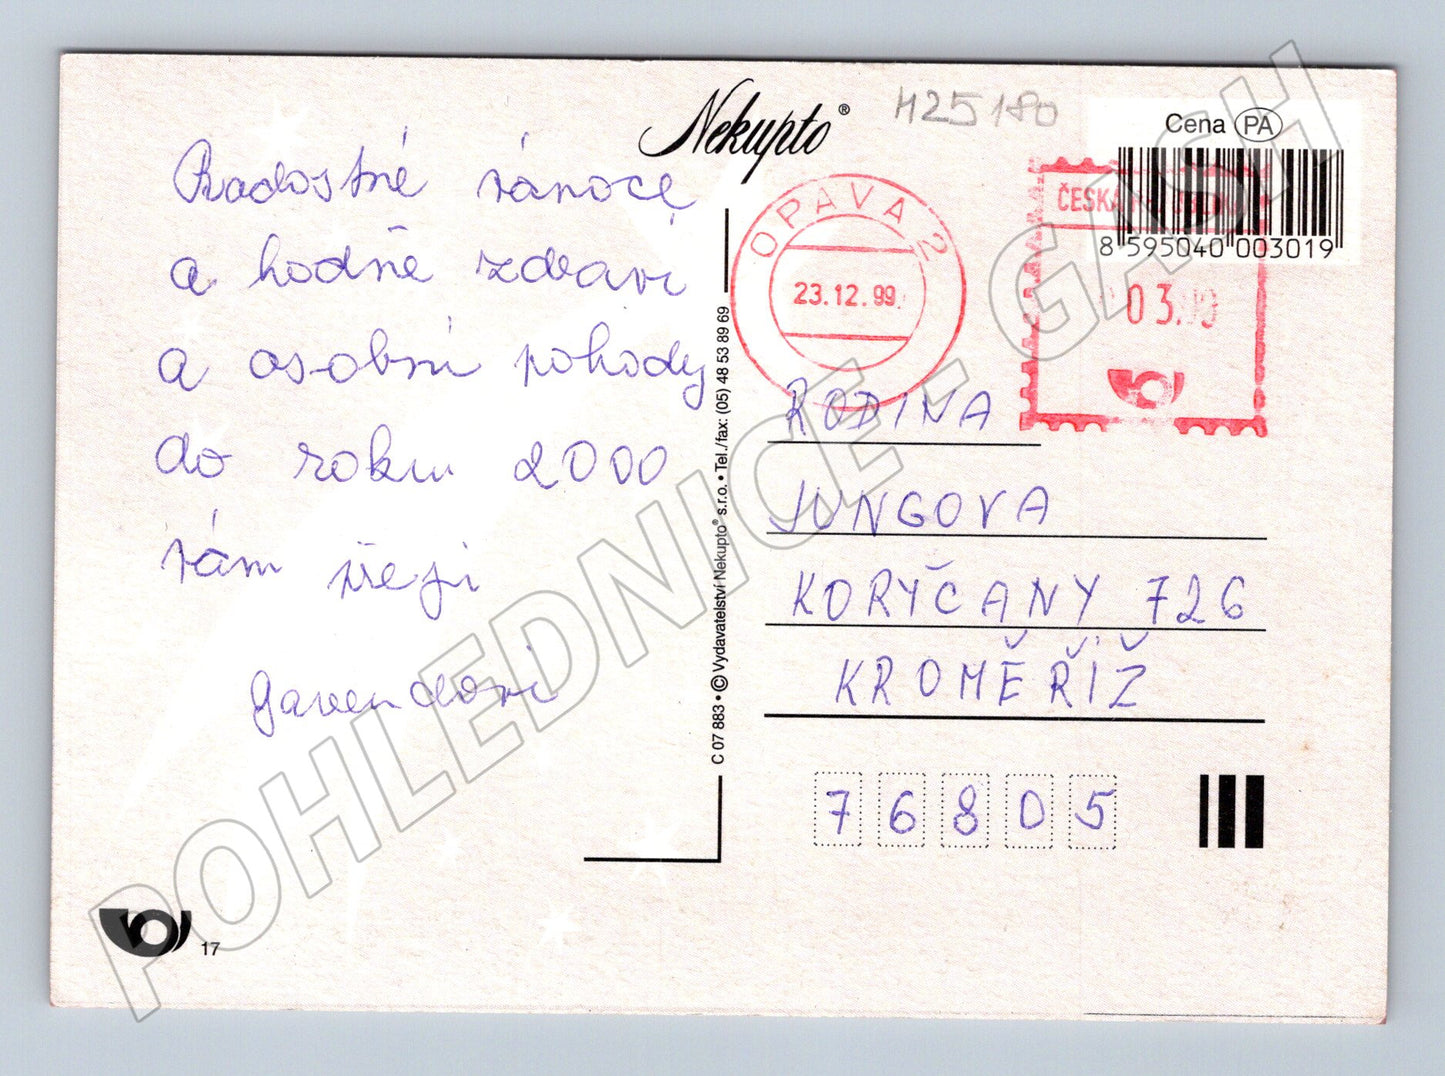 Nekupto®
H25180
Cena PA
8 595040 003019
OPAVA 2
23.12.99
ČESKÁ
03.
Radostné vánoce
a hodně zdraví
a osobní pohody
do roku 2000
vám přeji
Gavendovi
C 07 883 • © Vydavatelství Nekupto® s.r.o. • Tel./fax: (05) 48 53 89 69
RODINA
JUNGOVA
KORYČANY 726
KROMĚŘÍŽ
76805
17
POHLEDNICE - GASH